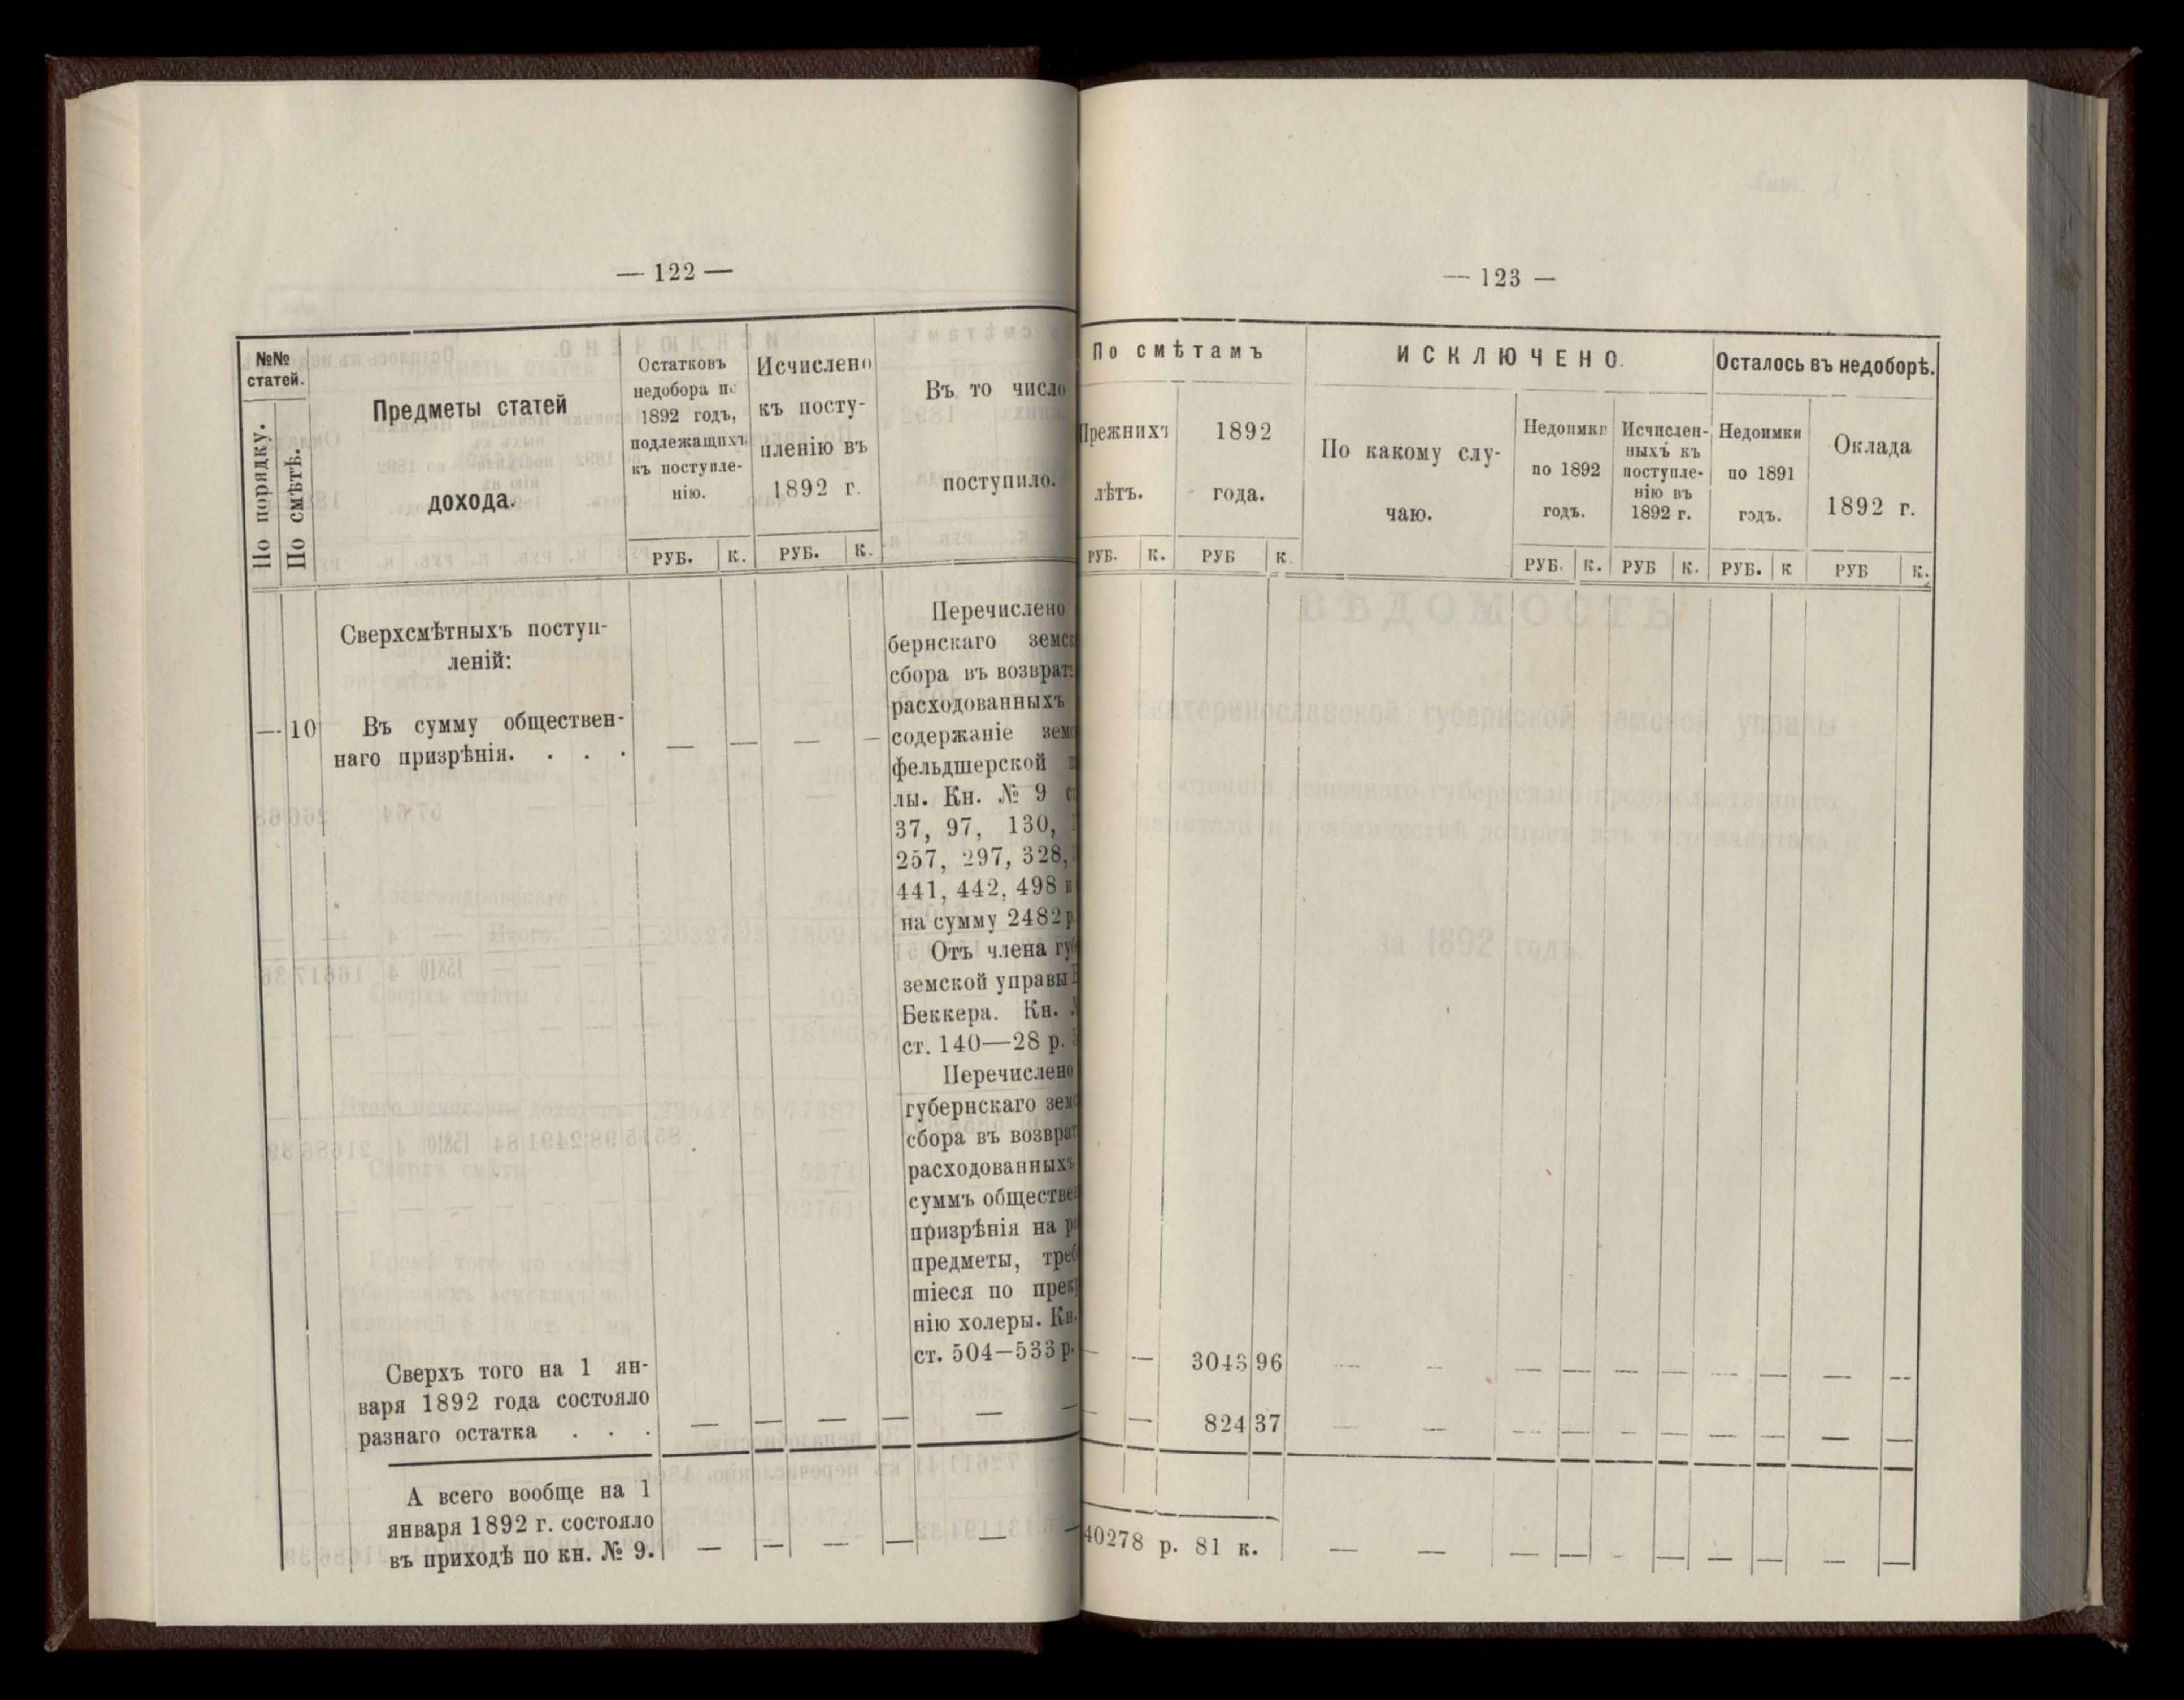 — 122 —
№№ статей.
По порядку.
По смѣтѣ.
Предметы статей
дохода.
Остатковъ
недобора по
1892 годъ,
подлежащихъ
къ поступле-
нію.
Исчислено
къ посту-
пленію въ
1892 г.
Въ то число
поступило.
РУБ. К. РУБ. К.
Сверхсмѣтныхъ поступ-
леній:
— 10 Въ сумму обществен-
наго призрѣнія. . . . — — — —
Перечислено
бернскаго
сбора въ
расходованныхъ
содержаніе
фельдшерской
лы. Кн. № 9
37, 97, 130,
257, 297, 328,
441, 442, 498 и
на сумму 2482 р.
Отъ члена
земской управы
Беккера. Кн.
ст. 140—28 р.
Перечислено
губернскаго
сбора въ
расходованныхъ
суммъ
призрѣнія на
предметы,
шіеся по
нію холеры. Кн.
ст. 504—533 р.
Сверхъ того на 1 ян-
варя 1892 года состояло
разнаго остатка . . . — — — — — —
А всего вообще на 1
января 1892 г. состояло
въ приходѣ по кн. № 9. — — — — — —
— 123 —
По смѣтамъ
Прежнихъ
лѣтъ.
1892
года.
ИСКЛЮЧЕНО.
По какому слу-
чаю.
Недоимки
по 1892
годъ.
Исчислен-
ныхъ къ
поступле-
нію въ
1892 г.
Осталось въ недоборѣ.
Недоимки
по 1891
годъ.
Оклада
1892 г.
РУБ. К. РУБ К. РУБ. К. РУБ К. РУБ. К РУБ К.
— — 3043 96 — — — — — — — — — —
— — 824 37 — — — — — — — — — —
40278 р. 81 к. — — — — — — — — — —